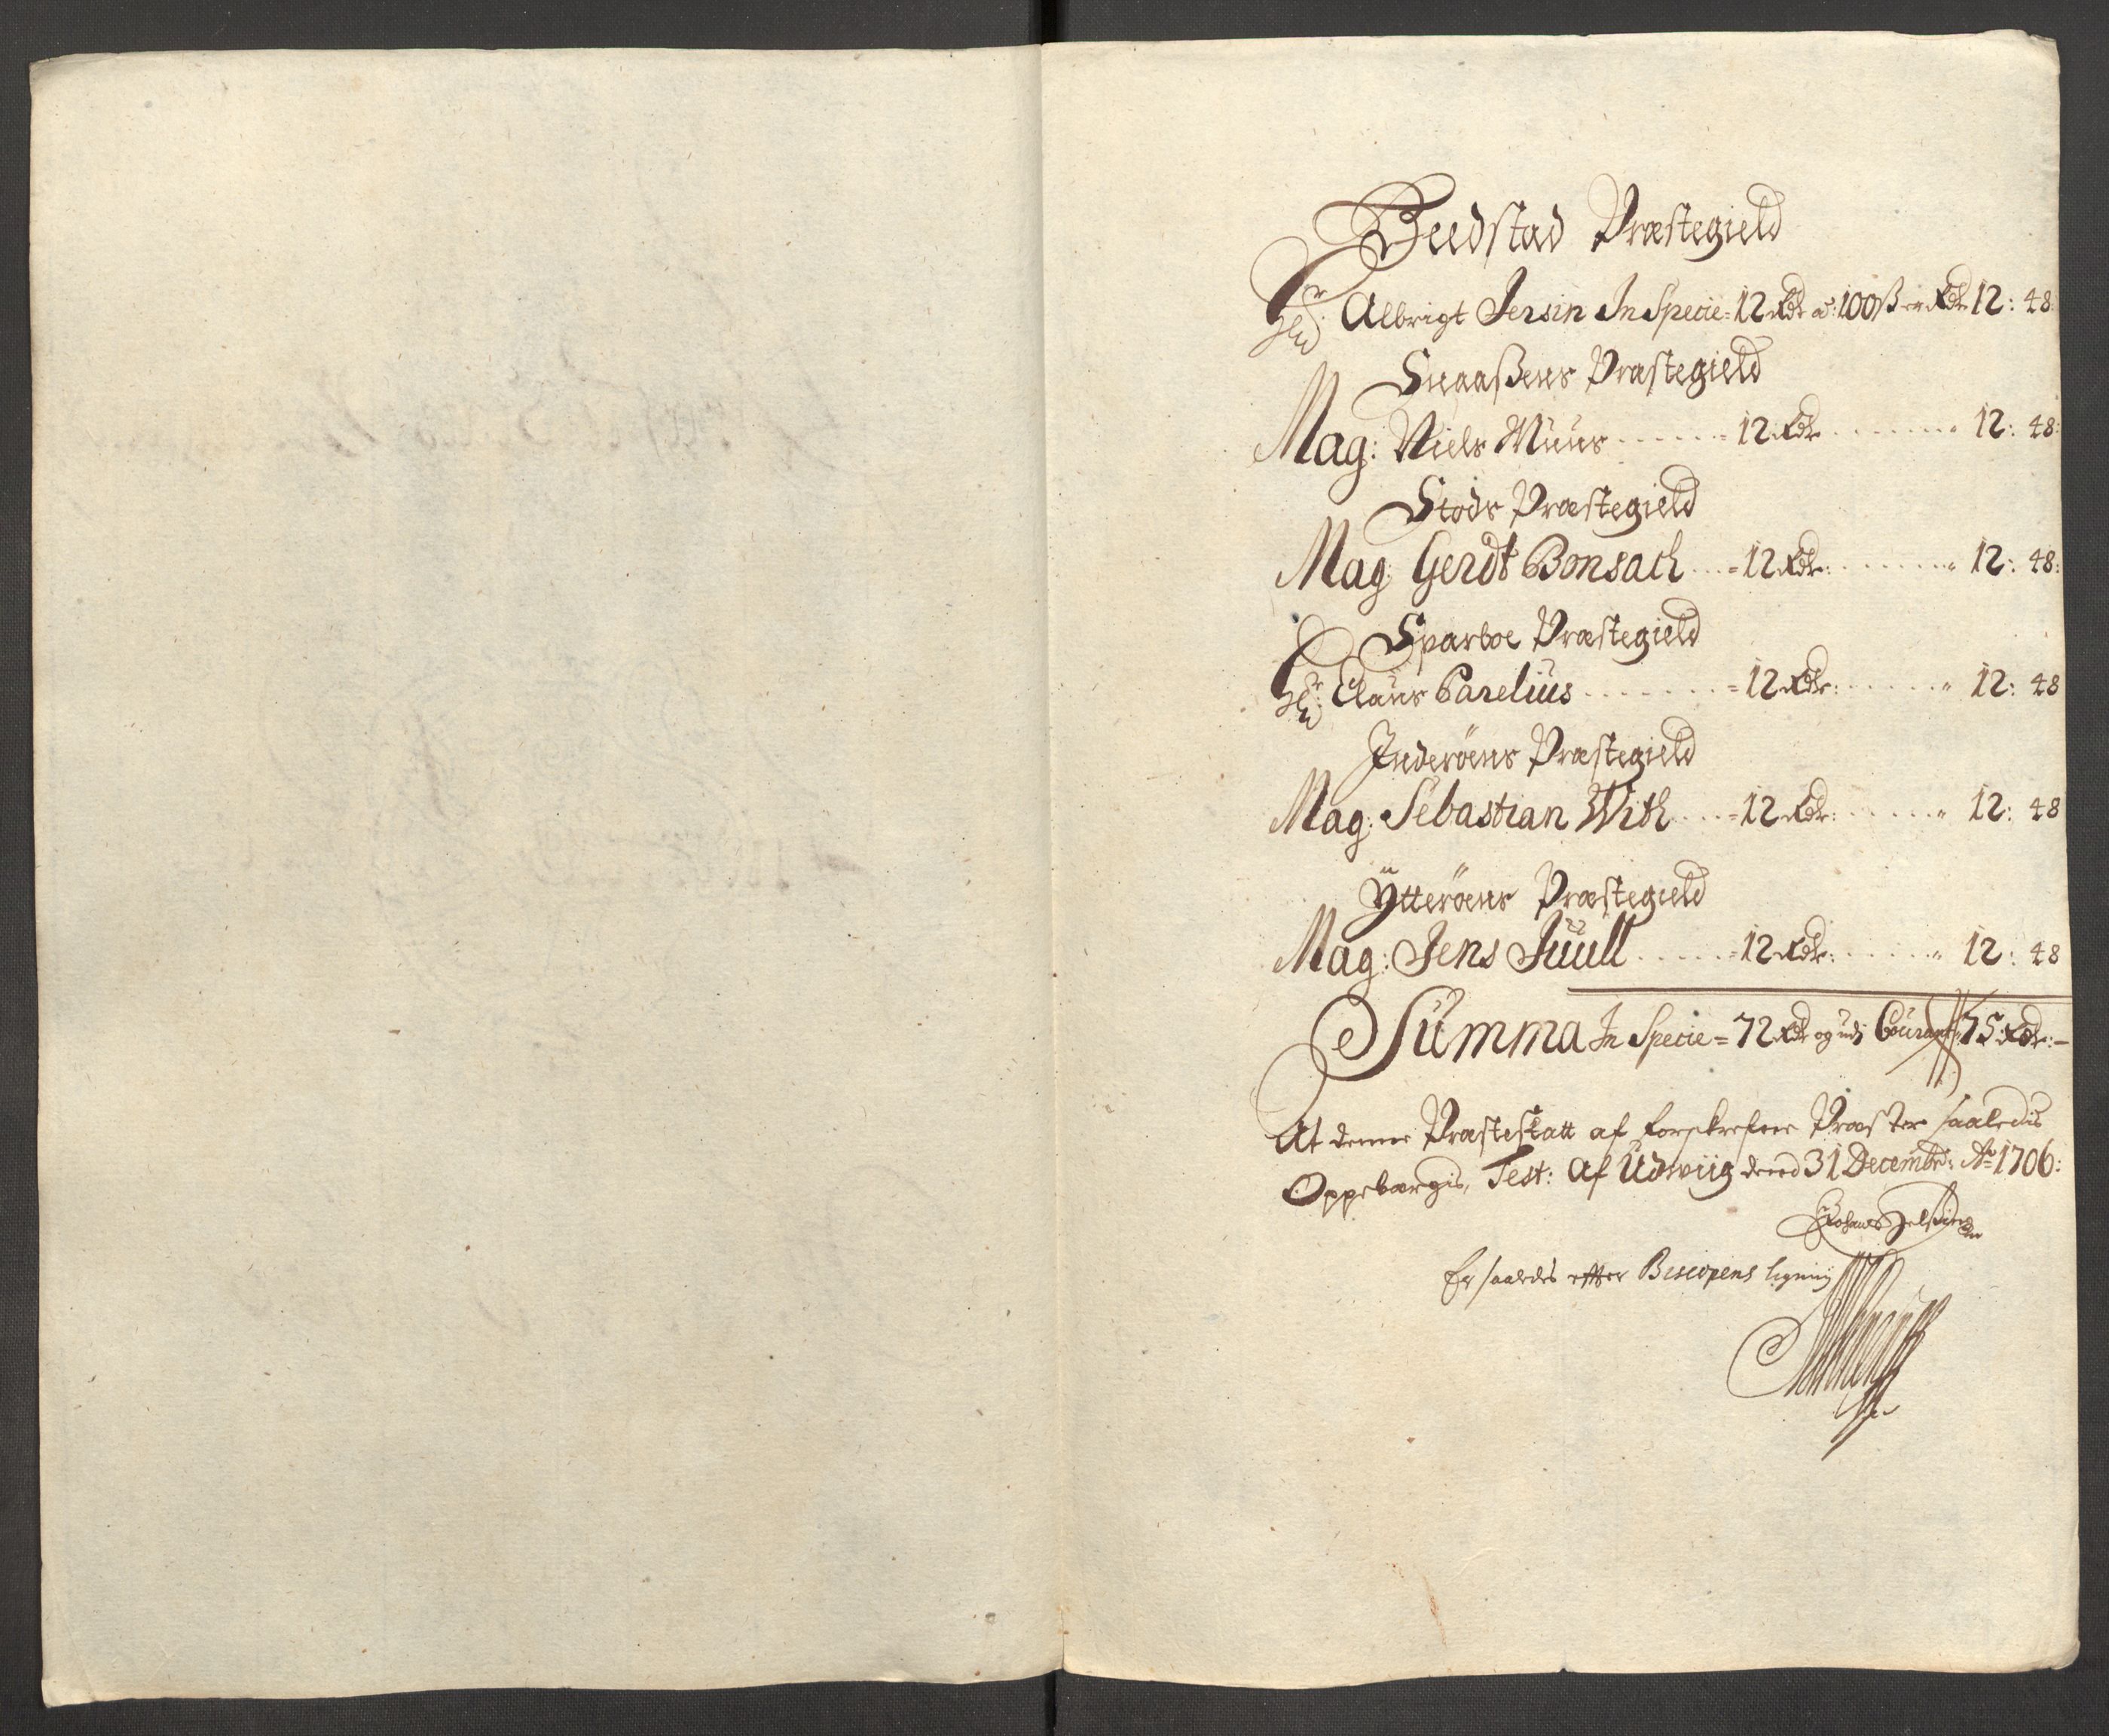 Beedstad Præstegield
Hr: Albrigt Jersin In Specie = 12 Rdr a: 100 ß er Rdr 12: 48:
Snaaßens Præstegield
Mag: Niels Muus ...... = 12 Rdr ........ 12: 48:
Stods Præstegield
Mag: Gerdt Bonsach ... = 12 Rdr: ........ 12: 48:
Sparboe Præstegield
Hr: Claus Parelius ....... = 12 Rdr: ...... 12: 48
Inderöens Præstegield
Mag: Sebastian With .... = 12 Rdr: ...... 12: 48
Ÿtteröens Præstegield
Mag: Jens Juull ...... = 12 Rdr: ...... 12: 48
Summa In Specie = 72 Rdr og udj Courant 75 Rdr: –
At denne Præsteskatt af forskrefne Præster saaledis
Oppebærgis, Test: Af Udwiig dend 31 Decembr: Ao 1706:
Er saaledes efter Biscopens ligning